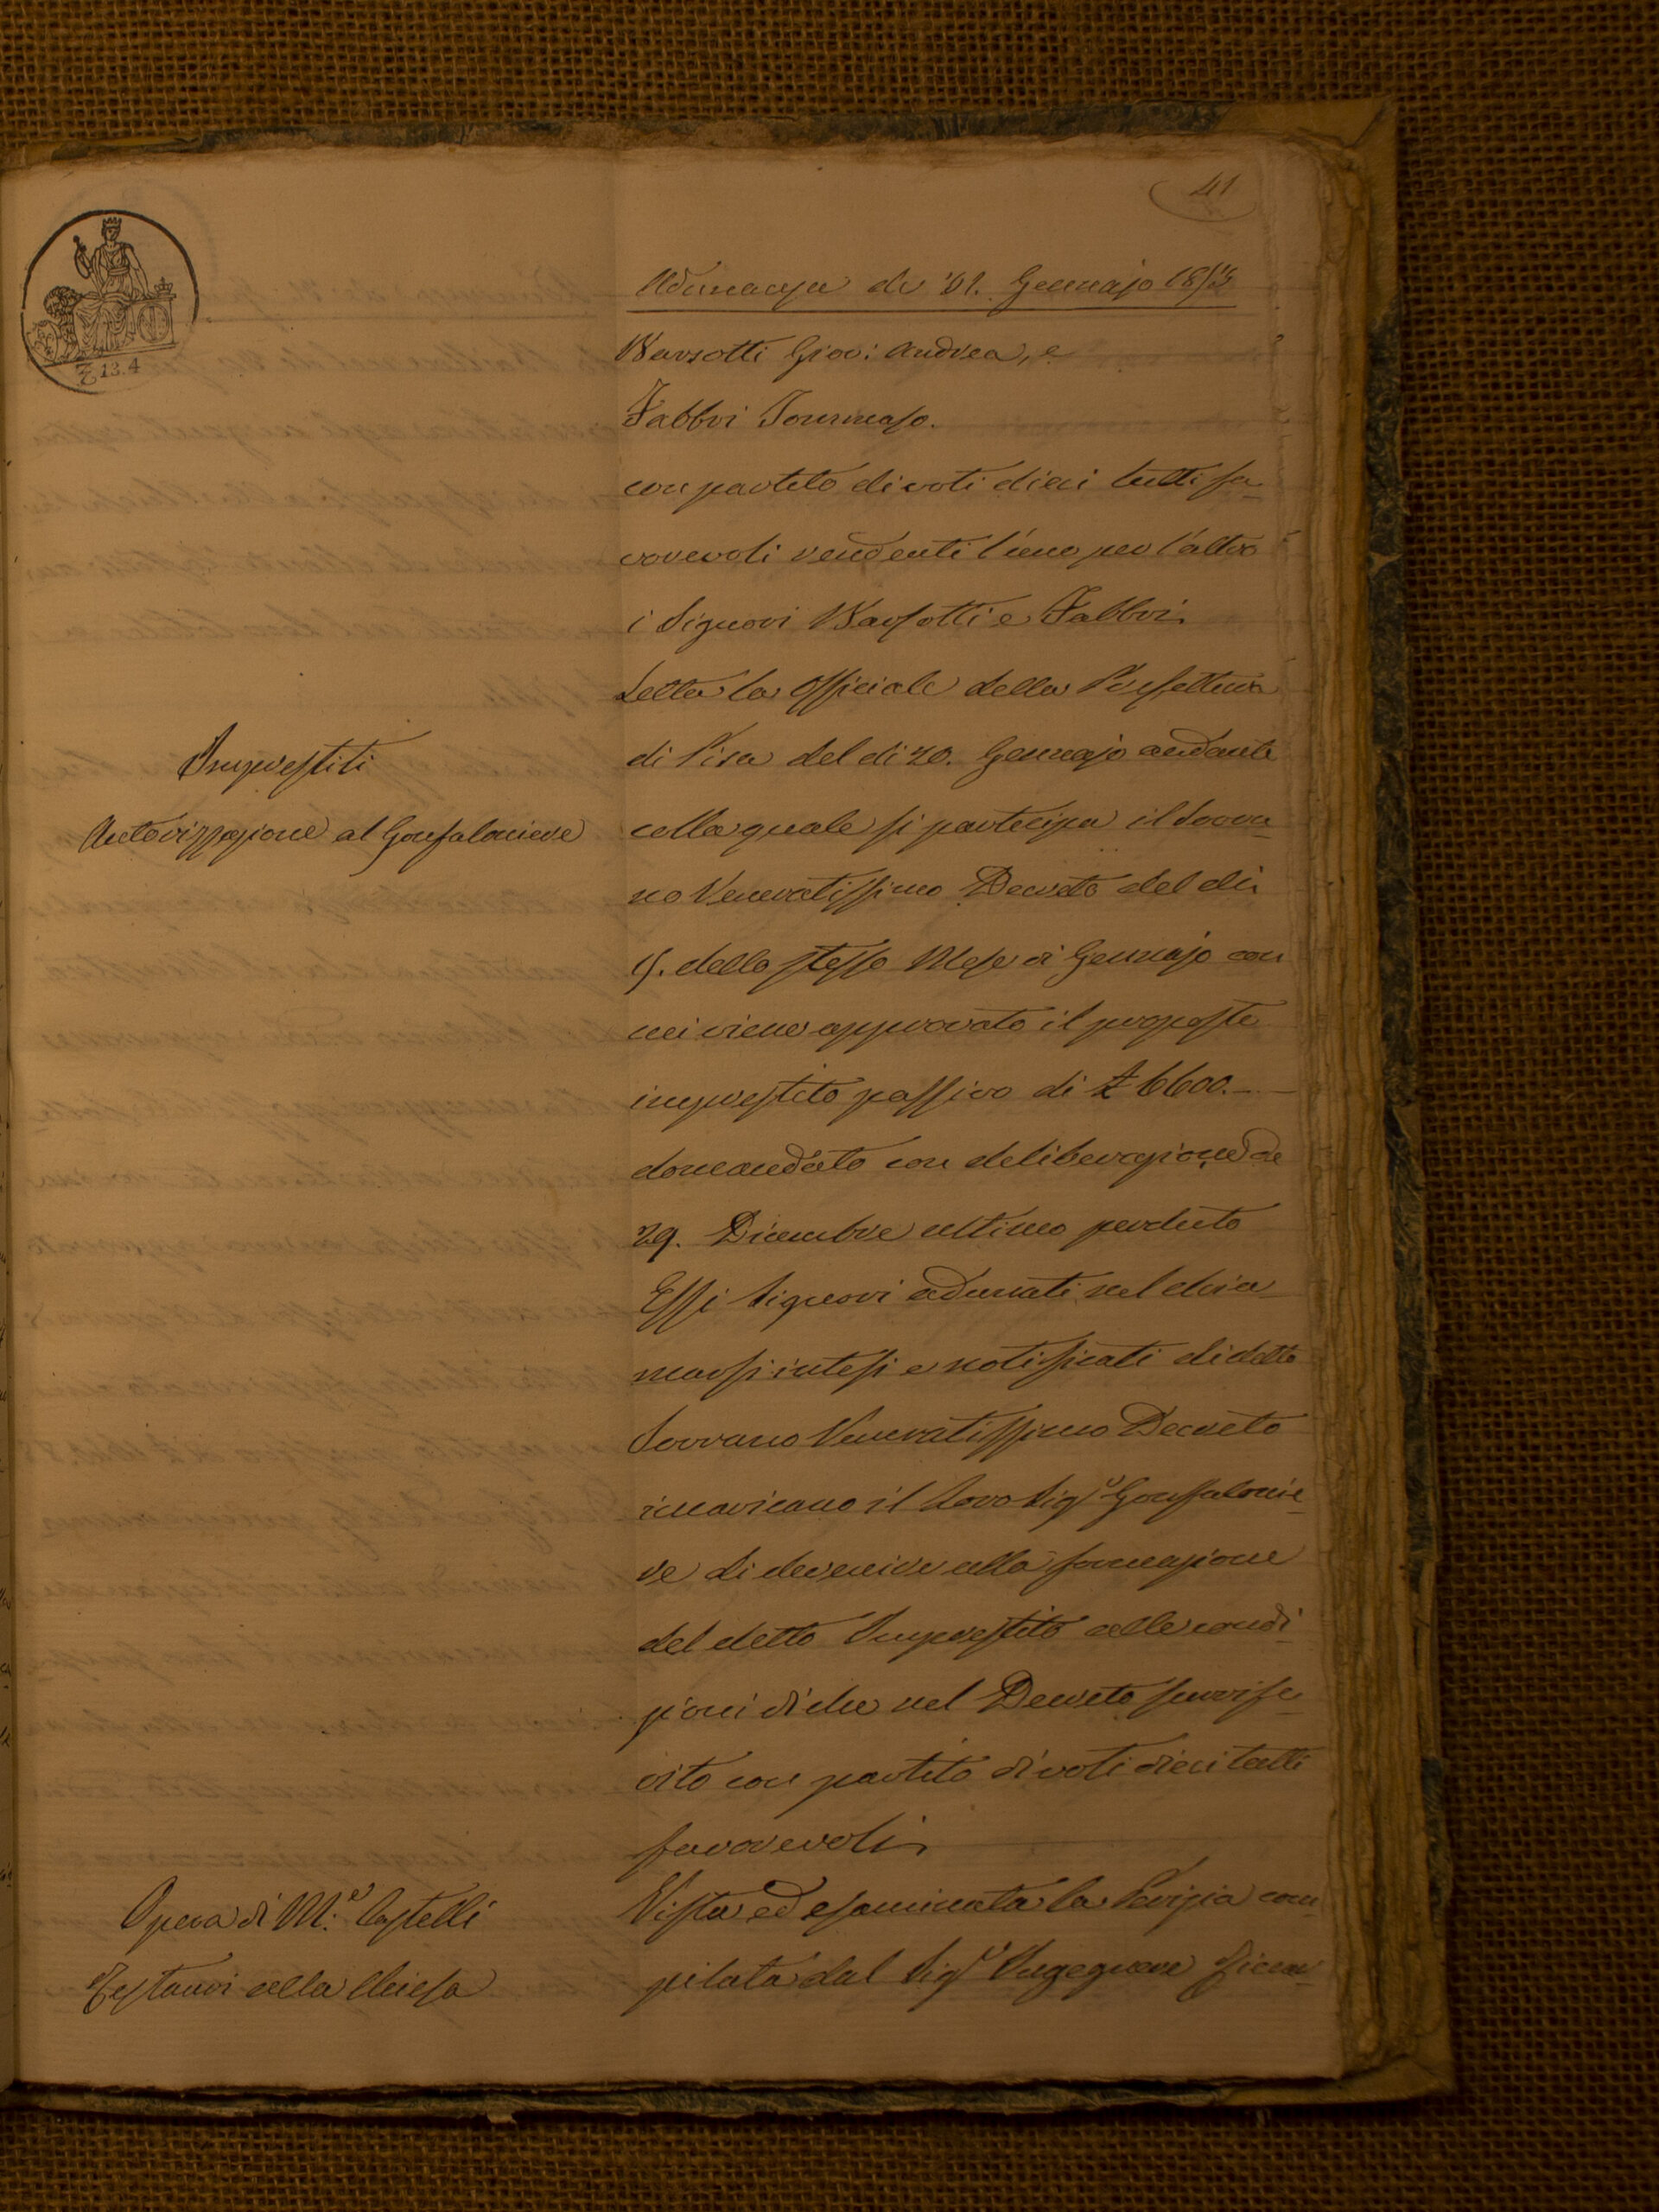 41
13.4
Adunanza de' 31. Gennajo 1853
Barsotti Giov: Andrea, e
Fabbri Tommaso.
con partito di voti dieci tutti fa
vorevoli rendenti l'uno per l'altro
i Signori Barsotti e Fabbri.
Letta la Officiale della Prefettura
di Pisa del di 20. Gennajo andante
Imprestiti
Autorizzazione al Gonfaloniere
colla quale si partecipa il Sovra
no Veneratissimo Decreto del dì
dello stesso Mese di Gennajo con
cui viene approvato il proposto
imprestito passivo di £ 6600.
domandato con deliberazione de
29. Dicembre ultimo perduto
Essi Signori adunati nel dichia
rarsi intesi e notificati di detto
Sovrano Veneratissimo Decreto
incaricano il Loro Sigr Gonfalonie
re di devenire alla formazione
del detto Imprestito alle condi
zioni di che nel Decreto surrife
rito con partito di voti dieci tutti
favorevoli
Opera di M.e Castelli
Restauri alla Chiesa
Vista ed esaminata la Perizia com
pilata dal Sigr Ingegnere